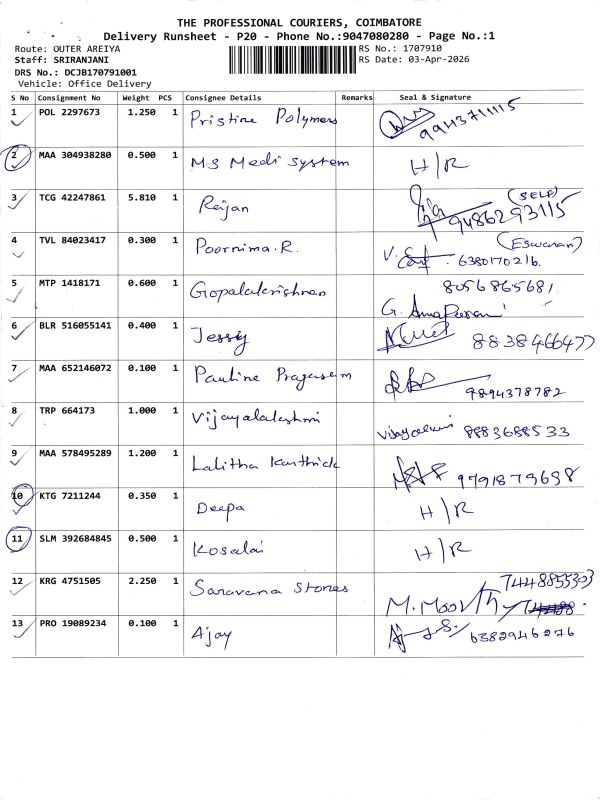 THE PROFESSIONAL COURIERS, COIMBATORE
Delivery Runsheet - P20 - Phone No.:9047080280 - Page No.:1
Route: OUTER AREIYA RS No.: 1707910
Staff: SRIRANJANI RS Date: 03-Apr-2026
DRS No.: DCJB170791001
Vehicle: Office Delivery
S No Consignment No Weight PCS Consignee Details Remarks Seal & Signature
1 POL 2297673 1.250 1 Pristine Polymers 9943711115
2 MAA 304938280 0.500 1 M.S Medi System H/R
3 TCG 42247861 5.810 1 Rajan (SELF) 9486293115
4 TVL 84023417 0.300 1 Poornima.R. (Eswaran) 6380170216.
5 MTP 1418171 0.600 1 Gopalakrishnan 8056865681.
6 BLR 516055141 0.400 1 Jessy 8838466477
7 MAA 652146072 0.100 1 Pauline Pragasam 9894378782
8 TRP 664173 1.000 1 Vijayalakshmi 8883688533
9 MAA 578495289 1.200 1 Lalitha Karthick 9791879698
10 KTG 7211244 0.350 1 Deepa H/R
11 SLM 392684845 0.500 1 Kosalai H/R
12 KRG 4751505 2.250 1 Saravana Stores 7448855303
M. Moorthy
13 PRO 19089234 0.100 1 Ajay 6382946276